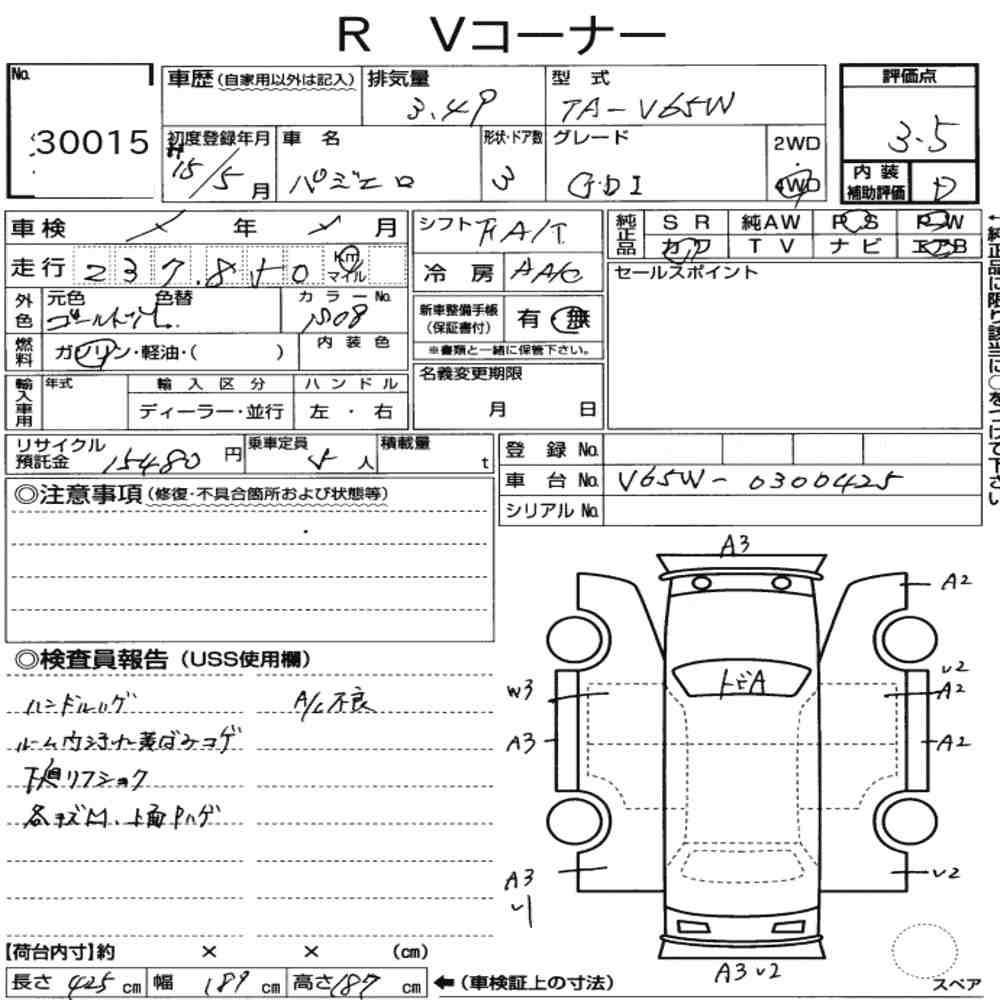 R Vコーナー
No. 30015
車歴（自家用以外は記入） 排気量 3.49 型 式 TA-V65W 評価点 3.5
初度登録年月 H15/5月 車 名 パジェロ 形状・ドア数 3 グレード GDI 2WD 4WD 内 装 補助評価 D
車 検 年 月
走 行 237.850 Km マイル
シフト FAT
冷 房 AAC
純正品 S R 純AW P S P W
カワ T V ナビ エアB
セールスポイント
←純正品に限り該当に○をつけて下さい
外色 元色 ゴールド 色替 カ ラ ー No.
燃料 ガソリン・軽油・( ) 内 装 色
新車整備手帳（保証書付） 有 無
※書類と一緒に保管下さい。
名義変更期限 月 日
輸入車用 年式 輸 入 区 分 ハ ン ド ル
ディーラー・並行 左 ・ 右
リサイクル預託金 15480 円 乗車定員 5 人 積載量 t
登 録 No.
車 台 No. V65W-0300425
シリアル No.
◎注意事項（修復・不具合箇所および状態等）
◎検査員報告（USS使用欄）
ハンドルハゲ A/C不良
ルーム内ヨゴレ黄ばみコゲ
下廻リフショク
各キズM、上面Pハゲ
A3
A2
W3
V2
A2
A3
A2
トビA
A3
V1
V2
A3 V2
スペア
【荷台内寸】約 × × (cm)
長さ 425 cm 幅 189 cm 高さ 187 cm ←（車検証上の寸法）